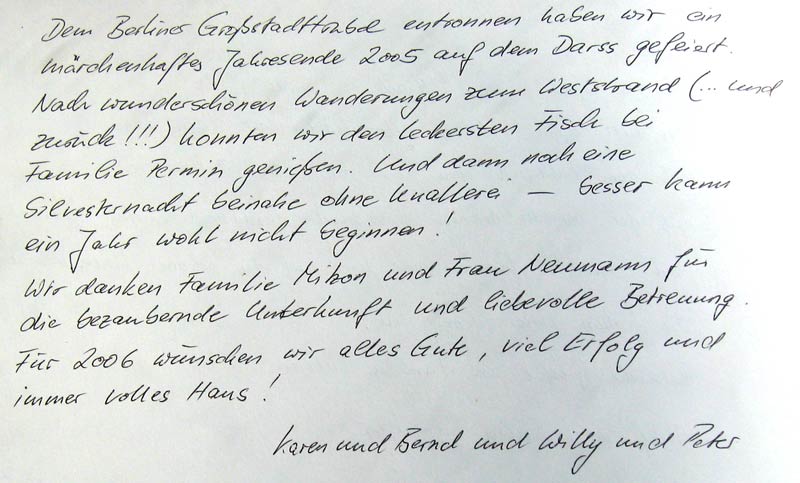 Dem Berliner Großstadttrubel entronnen haben wir ein
märchenhaftes Jahresende 2005 auf dem Darss gefeiert.
Nach wunderschönen Wanderungen zum Weststrand (... und
zurück!!!) konnten wir den leckersten Fisch bei
Familie Permin genießen. Und dann noch eine
Silvesternacht beinahe ohne Knallerei – besser kann
ein Jahr wohl nicht beginnen!
Wir danken Familie Mizon und Frau Neumann für
die bezaubernde Unterkunft und liebevolle Betreuung.
Für 2006 wünschen wir alles Gute, viel Erfolg und
immer volles Haus!
Karen und Bernd und Willy und Peter